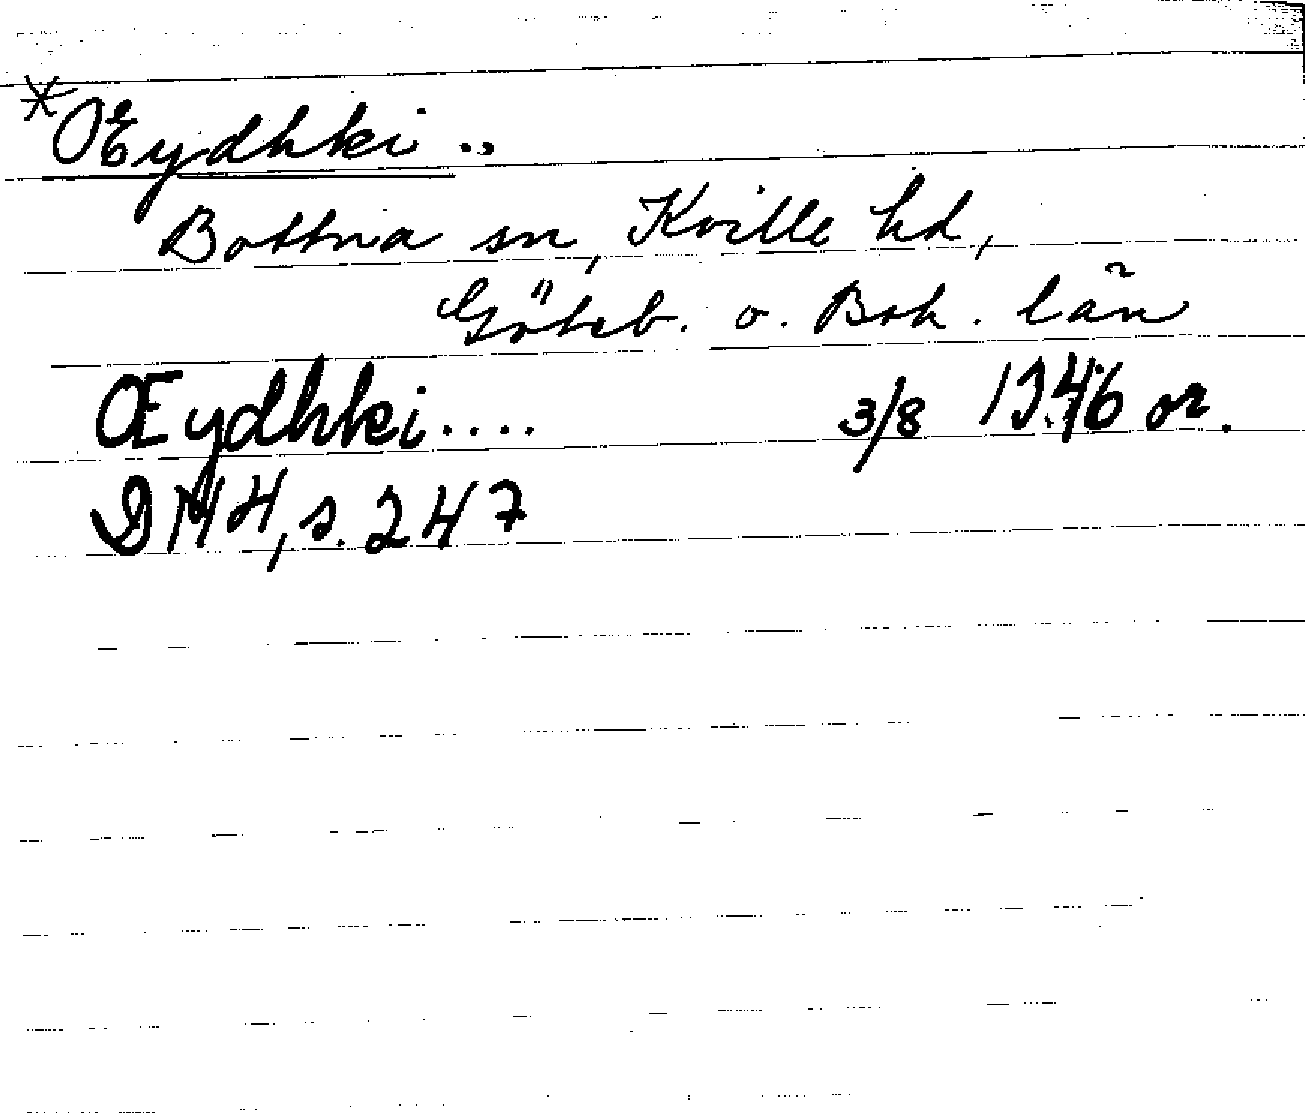 *Œydhki..
Bottna sn, Kville hd,
Göteb. o. Boh. län
Œydhki.... 3/8 1346 or.
DN 4, s. 247